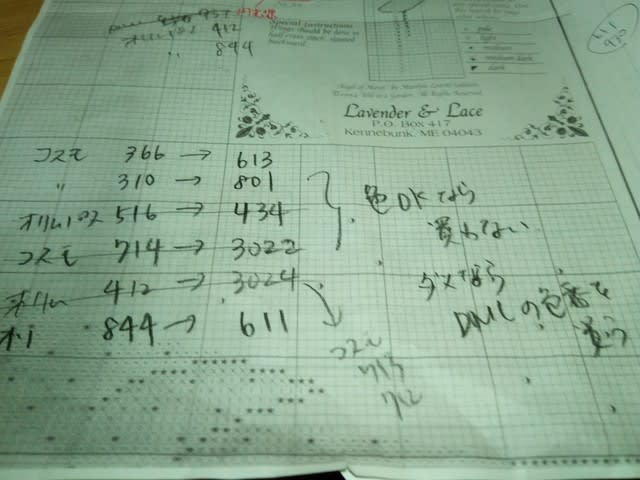 オリムパス 412
〃 844
Special Instructions
Wings should be done in
half cross stitch, slanted
backward.
light
medium
medium dark
dark
Lavender & Lace
P.O. Box 417
Kennebunk, ME 04043
コスモ 366 → 613
〃 310 → 801
オリムパス 516 → 434
コスモ 714 → 3022
オリム 412 → 3024
オリ 844 → 611
色OKなら
買わない
ダメなら
DMCの色番を
買う
コスモ
713
712